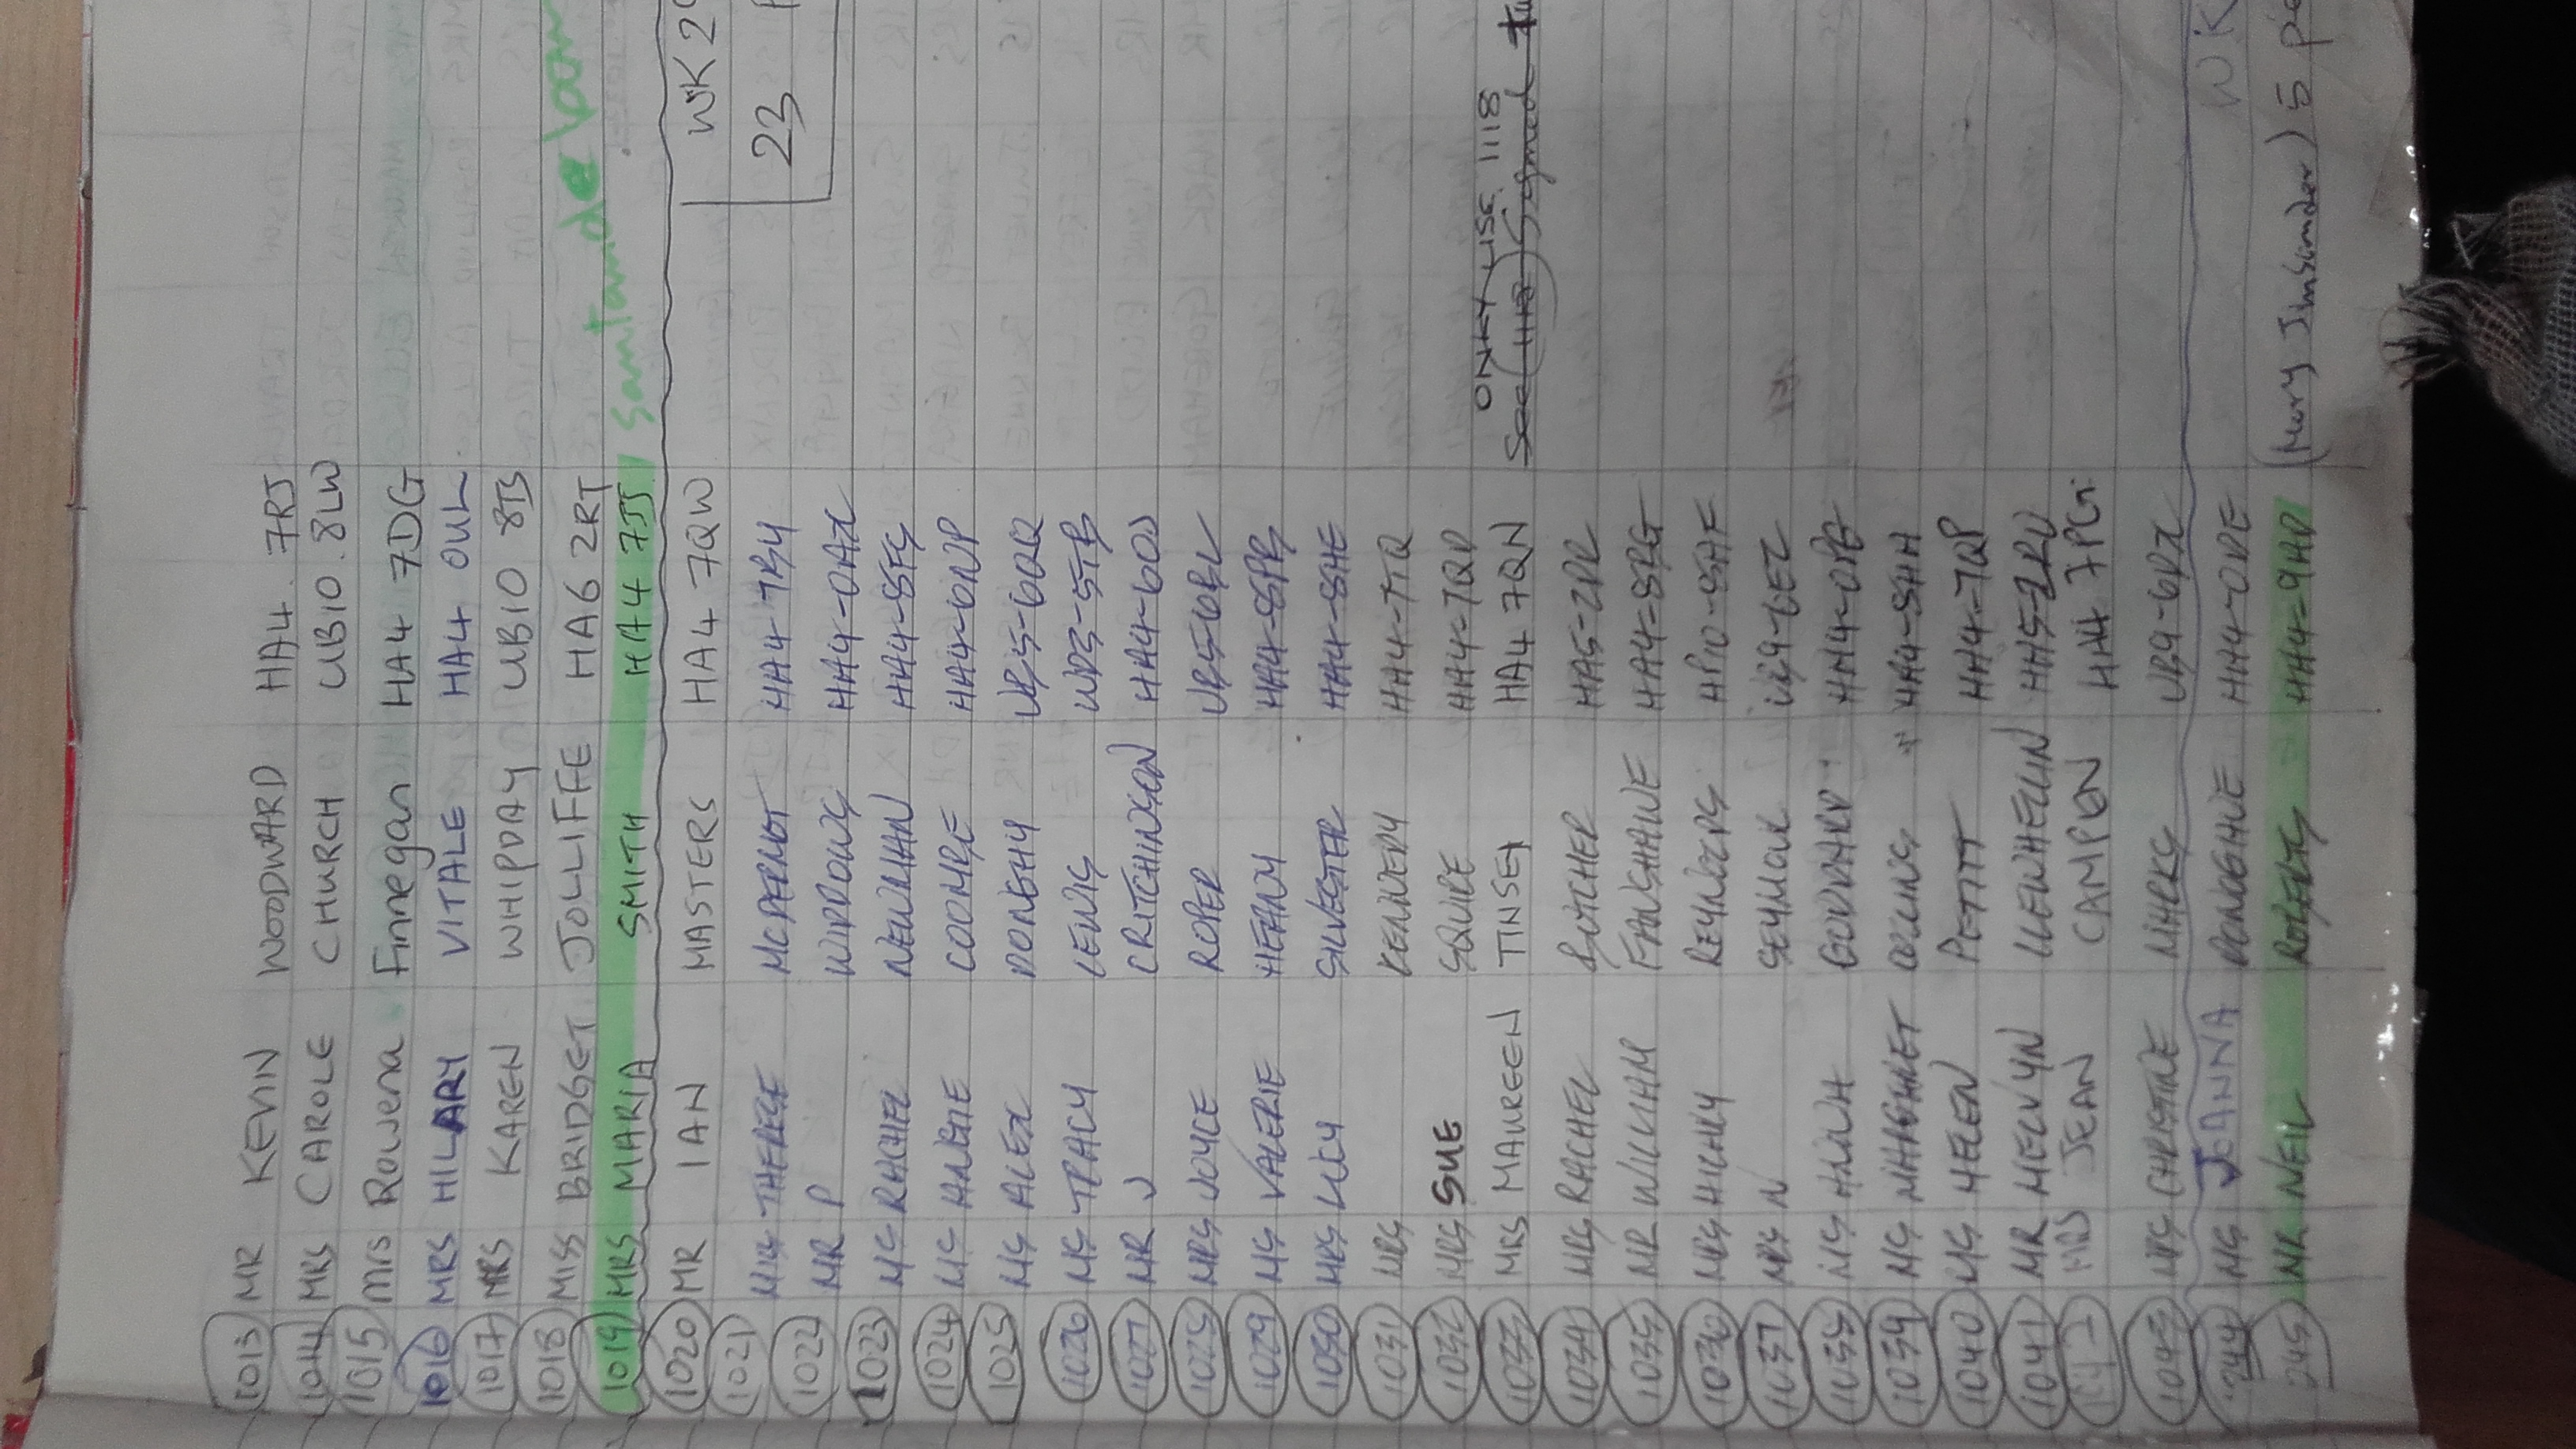 1013 MR KEVIN WOODWARD HA4 7RJ
1014 MRS CAROLE CHURCH UB10 8LW
1015 Mrs Rowena Finnegan HA4 7DG
1016 MRS HILARY VITALE HA4 0UL
1017 MRS KAREN WHIPDAY UB10 8TS
1018 MISS BRIDGET JOLLIFFE HA6 2RT
1019 MRS MARIA SMITH HA4 7JJ Santander
1020 MR IAN MASTERS HA4 7QW WK
1021 THERESE MCDERMOT HA4 7BY 23
1022 MR P WIDDOWS HA4-0AX
1023 MS RACHEL NEWMAN HA4-8FS
1024 MS ANGIE COOMBE HA4-0NP
1025 MS ALEX DONGHY UB5-6QQ
1026 MS TRACY LEWIS WD3-5TB
1027 MR J CRITCHINSON HA4-
1028 MRS JOYCE ROPER UB5-6BL
1029 MS VALERIE HEANY HA4-8PB
1030 MRS LUCY SILVESTER HA4-8HE
1031 MRS KENNEDY HA4-7TQ
1032 MRS SUE SQUIRE HA4-7QD
ONLY USE 1118
1033 MRS MAUREEN TINSEY HA4 7QN See 1118 Signed
1034 MRS RACHEL BUTCHER HA5-2DR
1035 MR WILLIAM FANSHAWE HA4-8RG
1036 MRS HILARY REYNOLDS HP10-8AF
1037 MRS N SEYMOUR UB9-6EZ
1038 MS ANNA GODDARD HA4-
1039 MS MARGARET COLLINS HA4-8HA
1040 MS HELEN PETITT HA4-7QP
1041 MR MELVYN LLEWHELLIN HA5-2RU
1042 MRS JEAN CAMPEN HA4 7PG
1043 MRS CHRISTINE MARKS UB9-6DX
244 MS JOANNA DONOGHUE HA4-0DE WK
245 MR NEIL ROBERTS HA4-9HD (Mary 5